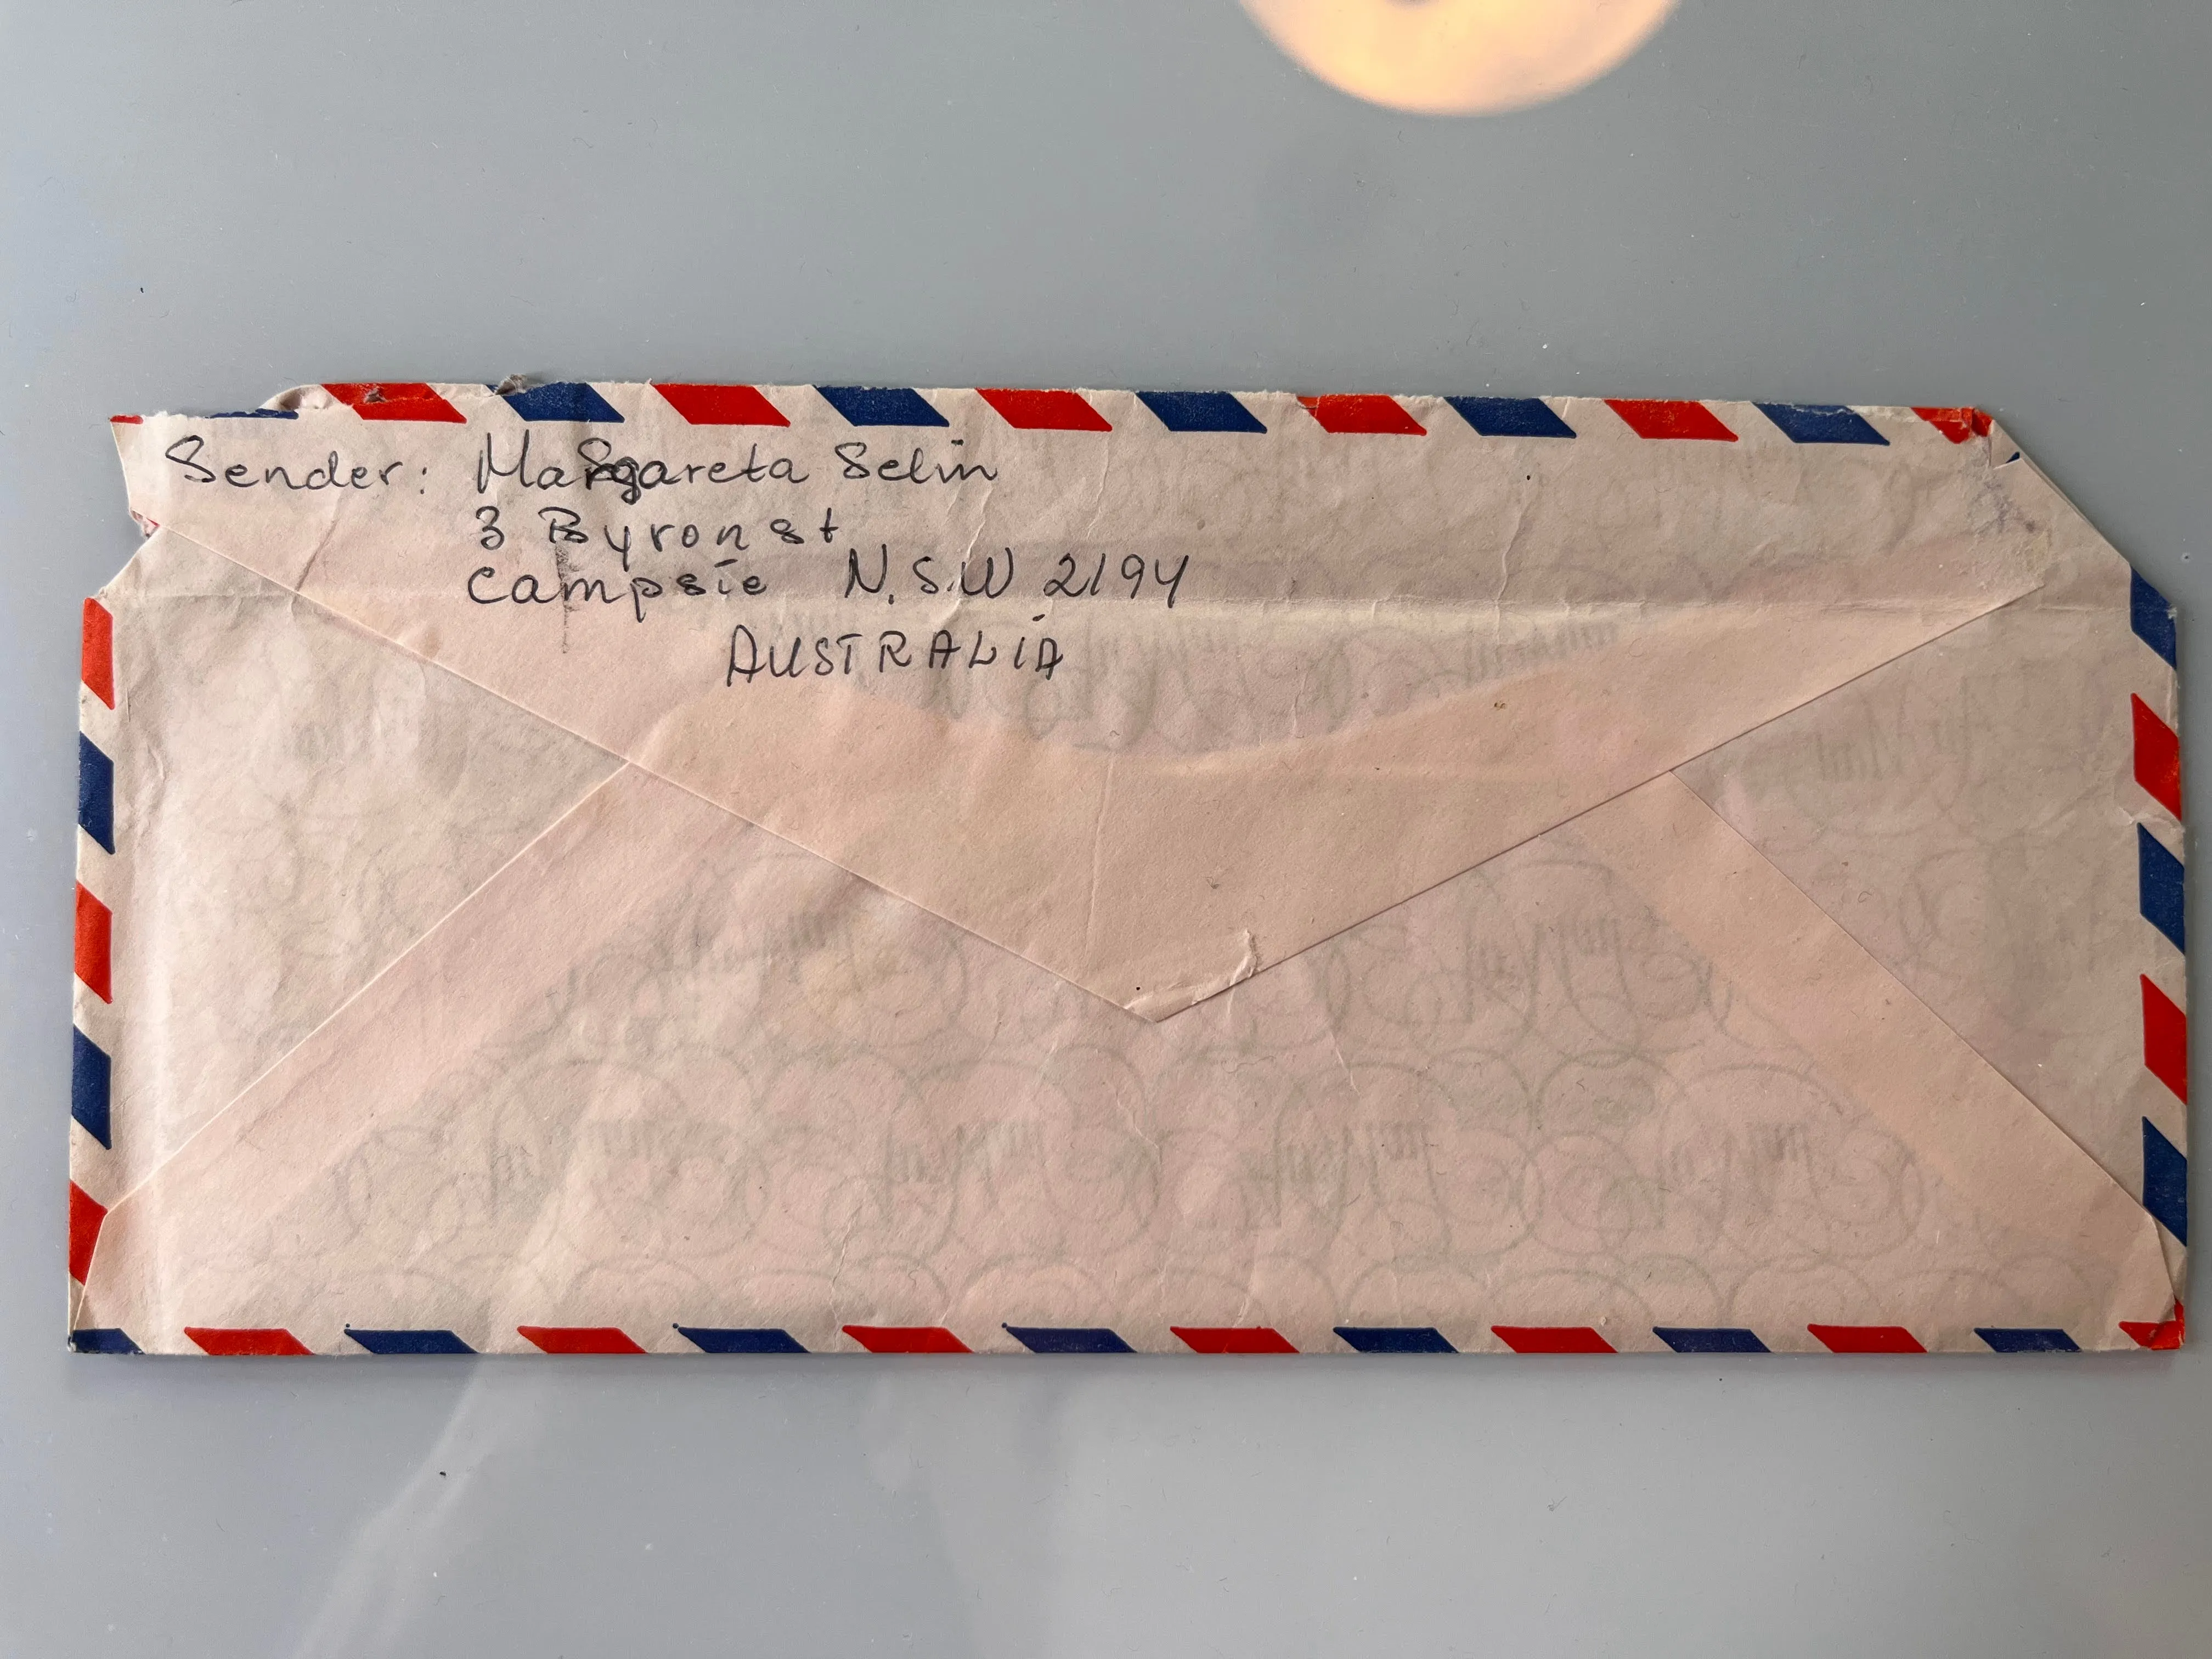 Sender: Margareta Selin
3 Byron st
Campsie N.S.W 2194
AUSTRALIA